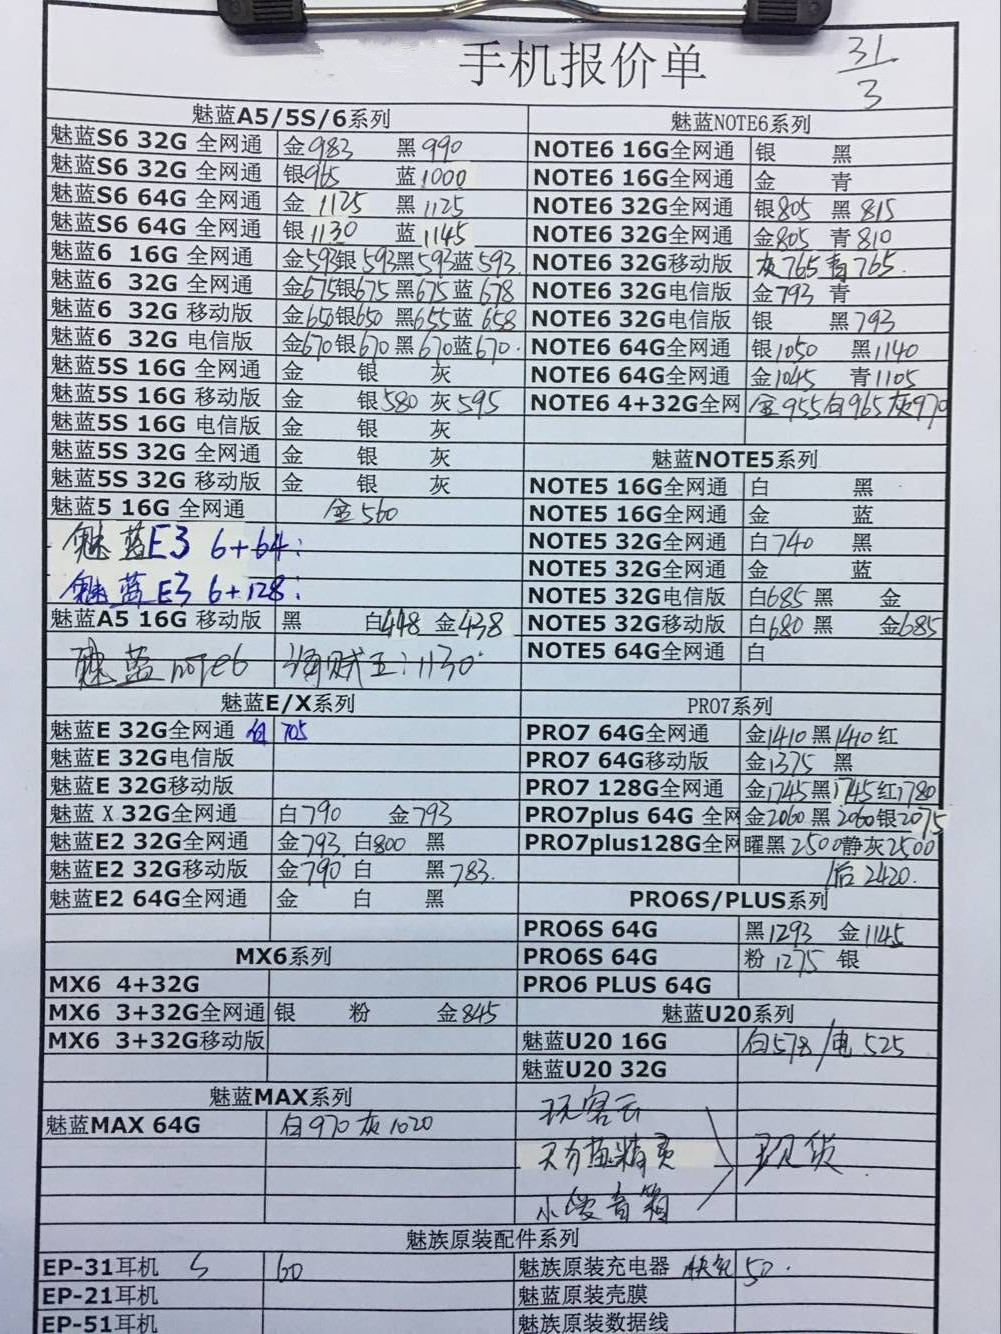 手机报价单 31/3
魅蓝A5/5S/6系列
魅蓝S6 32G 全网通 金983 黑990
魅蓝S6 32G 全网通 银965 蓝1000
魅蓝S6 64G 全网通 金 1125 黑1125
魅蓝S6 64G 全网通 银1130 蓝1145
魅蓝6 16G 全网通 金593银593黑593蓝593
魅蓝6 32G 全网通 金675银675 黑675 蓝678
魅蓝6 32G 移动版 金650银650 黑655蓝 658
魅蓝6 32G 电信版 金670银670黑670蓝670.
魅蓝5S 16G 全网通 金 银 灰
魅蓝5S 16G 移动版 金 银580 灰595
魅蓝5S 16G 电信版 金 银 灰
魅蓝5S 32G 全网通 金 银 灰
魅蓝5S 32G 移动版 金 银 灰
魅蓝5 16G 全网通 金560
魅蓝E3 6+64:
魅蓝E3 6+128:
魅蓝A5 16G 移动版 黑 白448 金438
魅蓝note6 海贼王:1130
魅蓝E/X系列
魅蓝E 32G全网通 白705
魅蓝E 32G电信版
魅蓝E 32G移动版
魅蓝 X 32G全网通 白790 金793
魅蓝E2 32G全网通 金793 白800 黑
魅蓝E2 32G移动版 金790 白 黑783.
魅蓝E2 64G全网通 金 白 黑
MX6系列
MX6 4+32G
MX6 3+32G全网通 银 粉 金845
MX6 3+32G移动版
魅蓝MAX系列
魅蓝MAX 64G 白970 灰1020
魅蓝NOTE6系列
NOTE6 16G全网通 银 黑
NOTE6 16G全网通 金 青
NOTE6 32G全网通 银805 黑815
NOTE6 32G全网通 金805 青810
NOTE6 32G移动版 灰765青765.
NOTE6 32G电信版 金793 青
NOTE6 32G电信版 银 黑793
NOTE6 64G全网通 银1050 黑1140
NOTE6 64G全网通 金1045 青1105
NOTE6 4+32G全网 金955白965灰970
魅蓝NOTE5系列
NOTE5 16G全网通 白 黑
NOTE5 16G全网通 金 蓝
NOTE5 32G全网通 白740 黑
NOTE5 32G全网通 金 蓝
NOTE5 32G电信版 白685 黑 金
NOTE5 32G移动版 白680 黑 金685
NOTE5 64G全网通 白
PRO7系列
PRO7 64G全网通 金1410 黑1410 红
PRO7 64G移动版 金1375 黑
PRO7 128G全网通 金1745黑1745红1780
PRO7plus 64G 全网 金2060黑2060银2075
PRO7plus128G全网 曜黑2500静灰2500
/后2420.
PRO6S/PLUS系列
PRO6S 64G 黑1293 金1145
PRO6S 64G 粉1275 银
PRO6 PLUS 64G
魅蓝U20系列
魅蓝U20 16G 白578/电525
魅蓝U20 32G
玩客云
天猫精灵 现货
音箱
魅族原装配件系列
EP-31耳机 60
EP-21耳机
EP-51耳机
魅族原装充电器 快充 50.
魅蓝原装壳膜
魅族原装数据线